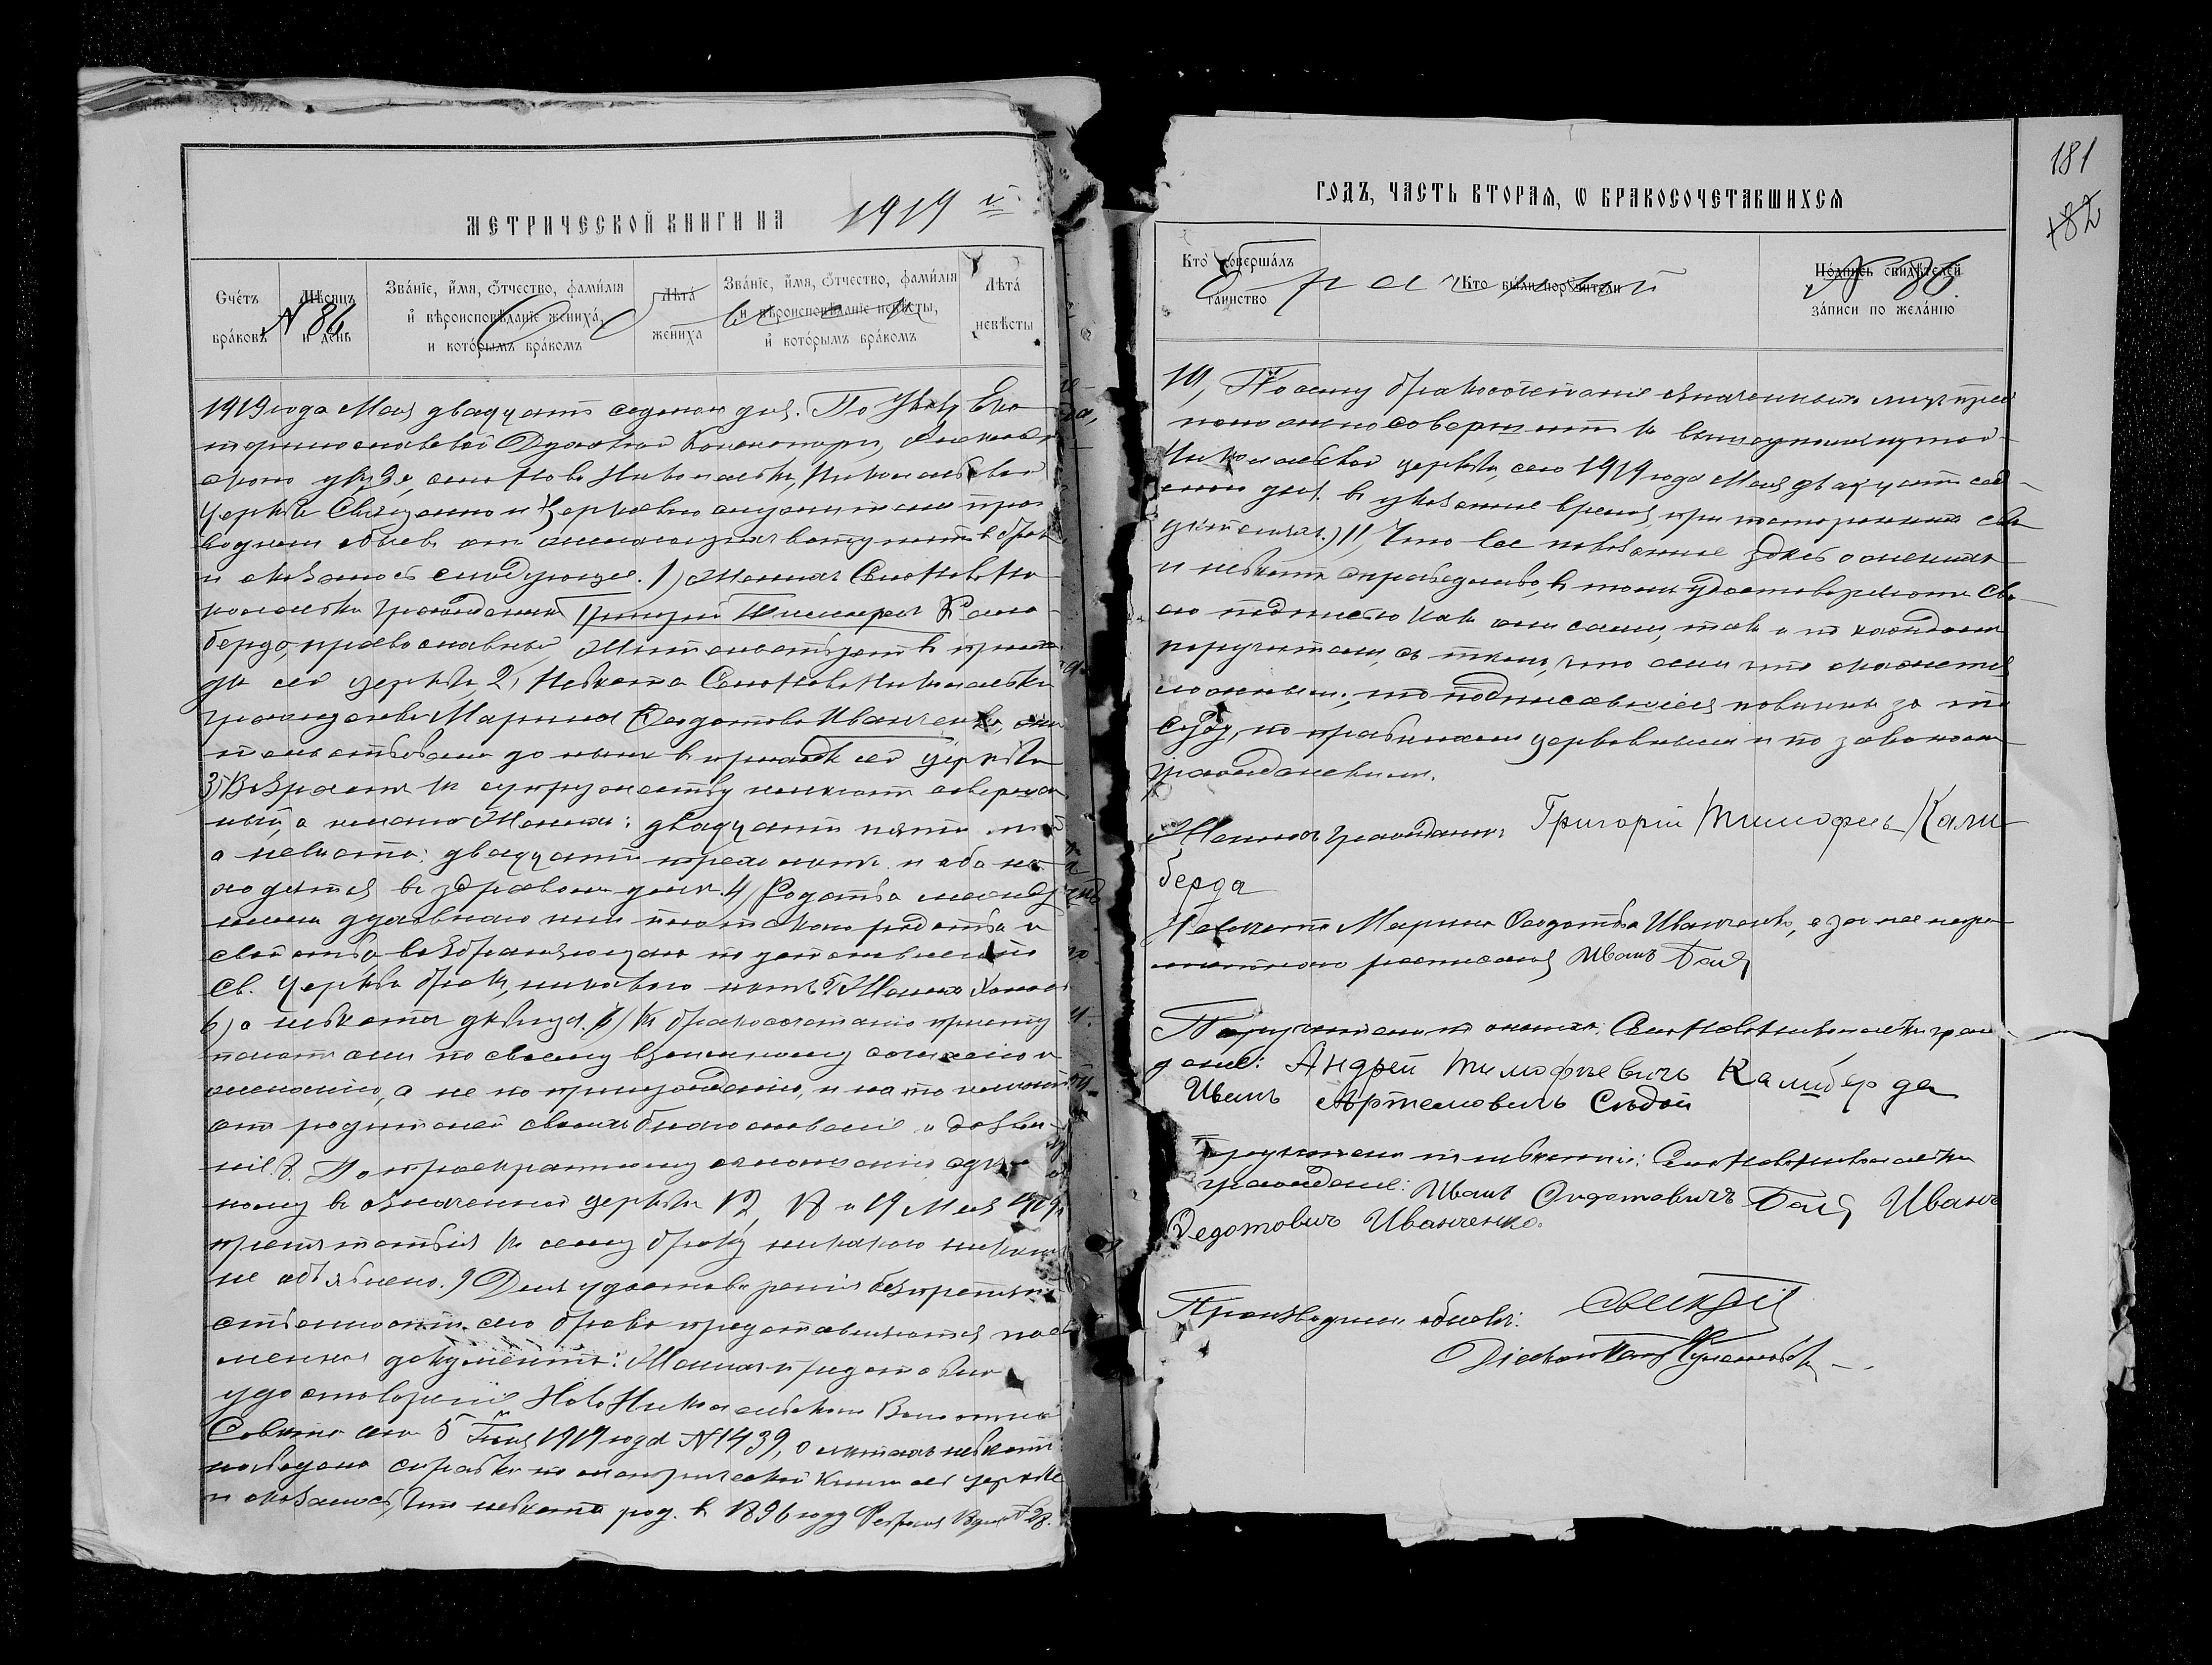 МЕТРИЧЕСКОЙ КНИГИ НА 1919 й
Счéтъ брáковъ
Мѣсяцъ и день
Звáнїе, и́мя, ѻ҆́тчество, фами́лїя и҆ вѣроисповѣ́данїе женихá, и кото́рымъ брáкомъ
Лѣтá женихá
Звáнїе, и́мя, ѻ҆́тчество, фами́лїя и вѣроисповѣ́данїе невѣ́сты, и҆ кото́рымъ брáкомъ
Лѣтá невѣ́сты
N 86
1919 года Мая двадцать седьмого дня. По Указу Ека
теринославской Духовной Консисторіи, Александров
скаго уѣзда, села Ново Николаевки, Николаевской
Церкви Священно и Церковнослужители про
водили обыскъ о желающихъ вступить въ бракъ
и оказалось слѣдующее. 1) Женихъ Села Ново Ни
колаевки гражданинъ Григорій Тимофеевъ Кали
берда, православный, жительствуетъ въ прихо
дѣ сей церкви 2) Невѣста Села Ново Николаевки
гражданка Марина Федотова Иванченкова, жи
тельствовала до нынѣ въ приходѣ сей церкви
3) Возрастъ къ супружеству имѣютъ совершен
ный, а именно Женихъ: двадцати пяти лѣтъ
а невѣста: двадцати трехъ лѣтъ и оба на
ходятся въ здравомъ умѣ. 4) Родства между
ними духовнаго или плотского родства и
свойства возбраняющаго по установленію
Св. Церкви бракъ, никакого нѣтъ. 5) Женихъ холостъ
6) а невѣста дѣвица. 6) Къ бракосочетанію присту
паютъ они по своему взаимному согласію и
желанію, а не по принужденію, и на то имѣютъ
отъ родителей своихъ благословеніе и дозволе
ніе. 8. По троекратному оглашенію сдѣлан
ному въ означенной церкви 12, 18 и 19 Мая 1919
препятствія къ сему браку никакого никѣмъ
не объявлено. 9 Для удостовѣренія безпрепят
ственности сего брака представляются пись
менные документы: Женихъ представилъ
удостовѣреніе Ново Николаевскаго Волостного
Совѣта отъ 5 1919 года N 1439, о лѣтахъ невѣсты
наведена справка по метрической книгѣ сей церкви
и оказалось, что невѣста род. въ 1896 году Февраля N 28.
ГОДЪ, ЧАСТЬ ВТОРАЯ, Ѡ БРАКОСОЧЕТАВШИХСЯ
181
182
Кто совершáлъ тáинство
Кто были поручители
Пóдпись свидѣ́телей зáписи по желáнїю
N 86.
10, По сему бракосочетаніе означенныхъ лицъ пред
положено совершить въ вышеупомянутой
Николаевской церкви, сего 1919 года Мая двадцать седь
мого дня въ указанное время при постороннихъ сви
дѣтеляхъ. 11, Что все показанное здѣсь о женихѣ
и невѣстѣ справедливо, въ томъ удостовѣряютъ сво
ею подписью какъ они сами, такъ и по каждомъ
поручители, съ тѣмъ, что если что окажется
ложнымъ, то подписавшіеся повинны за то
суду, по правиламъ церковнымъ и по законамъ
гражданскимъ.
Женихъ гражданинъ Григорій Тимофеев Кали
берда
Невѣста Марина Федотова Иванченкова, а за нее негра
мотную росписался Иванъ Баля
Поручители по женихѣ: Села Ново Николаевки граж
дане: Андрей Тимофѣевичъ Калиберда
Иванъ Артемовичъ Сѣдой
Поручители по невѣстѣ: Села Ново Николаевки
граждане: Иванъ Федотовичъ Баля Иванъ
Федотовичъ Иванченко.
Производили обыскъ:
Діаконъ